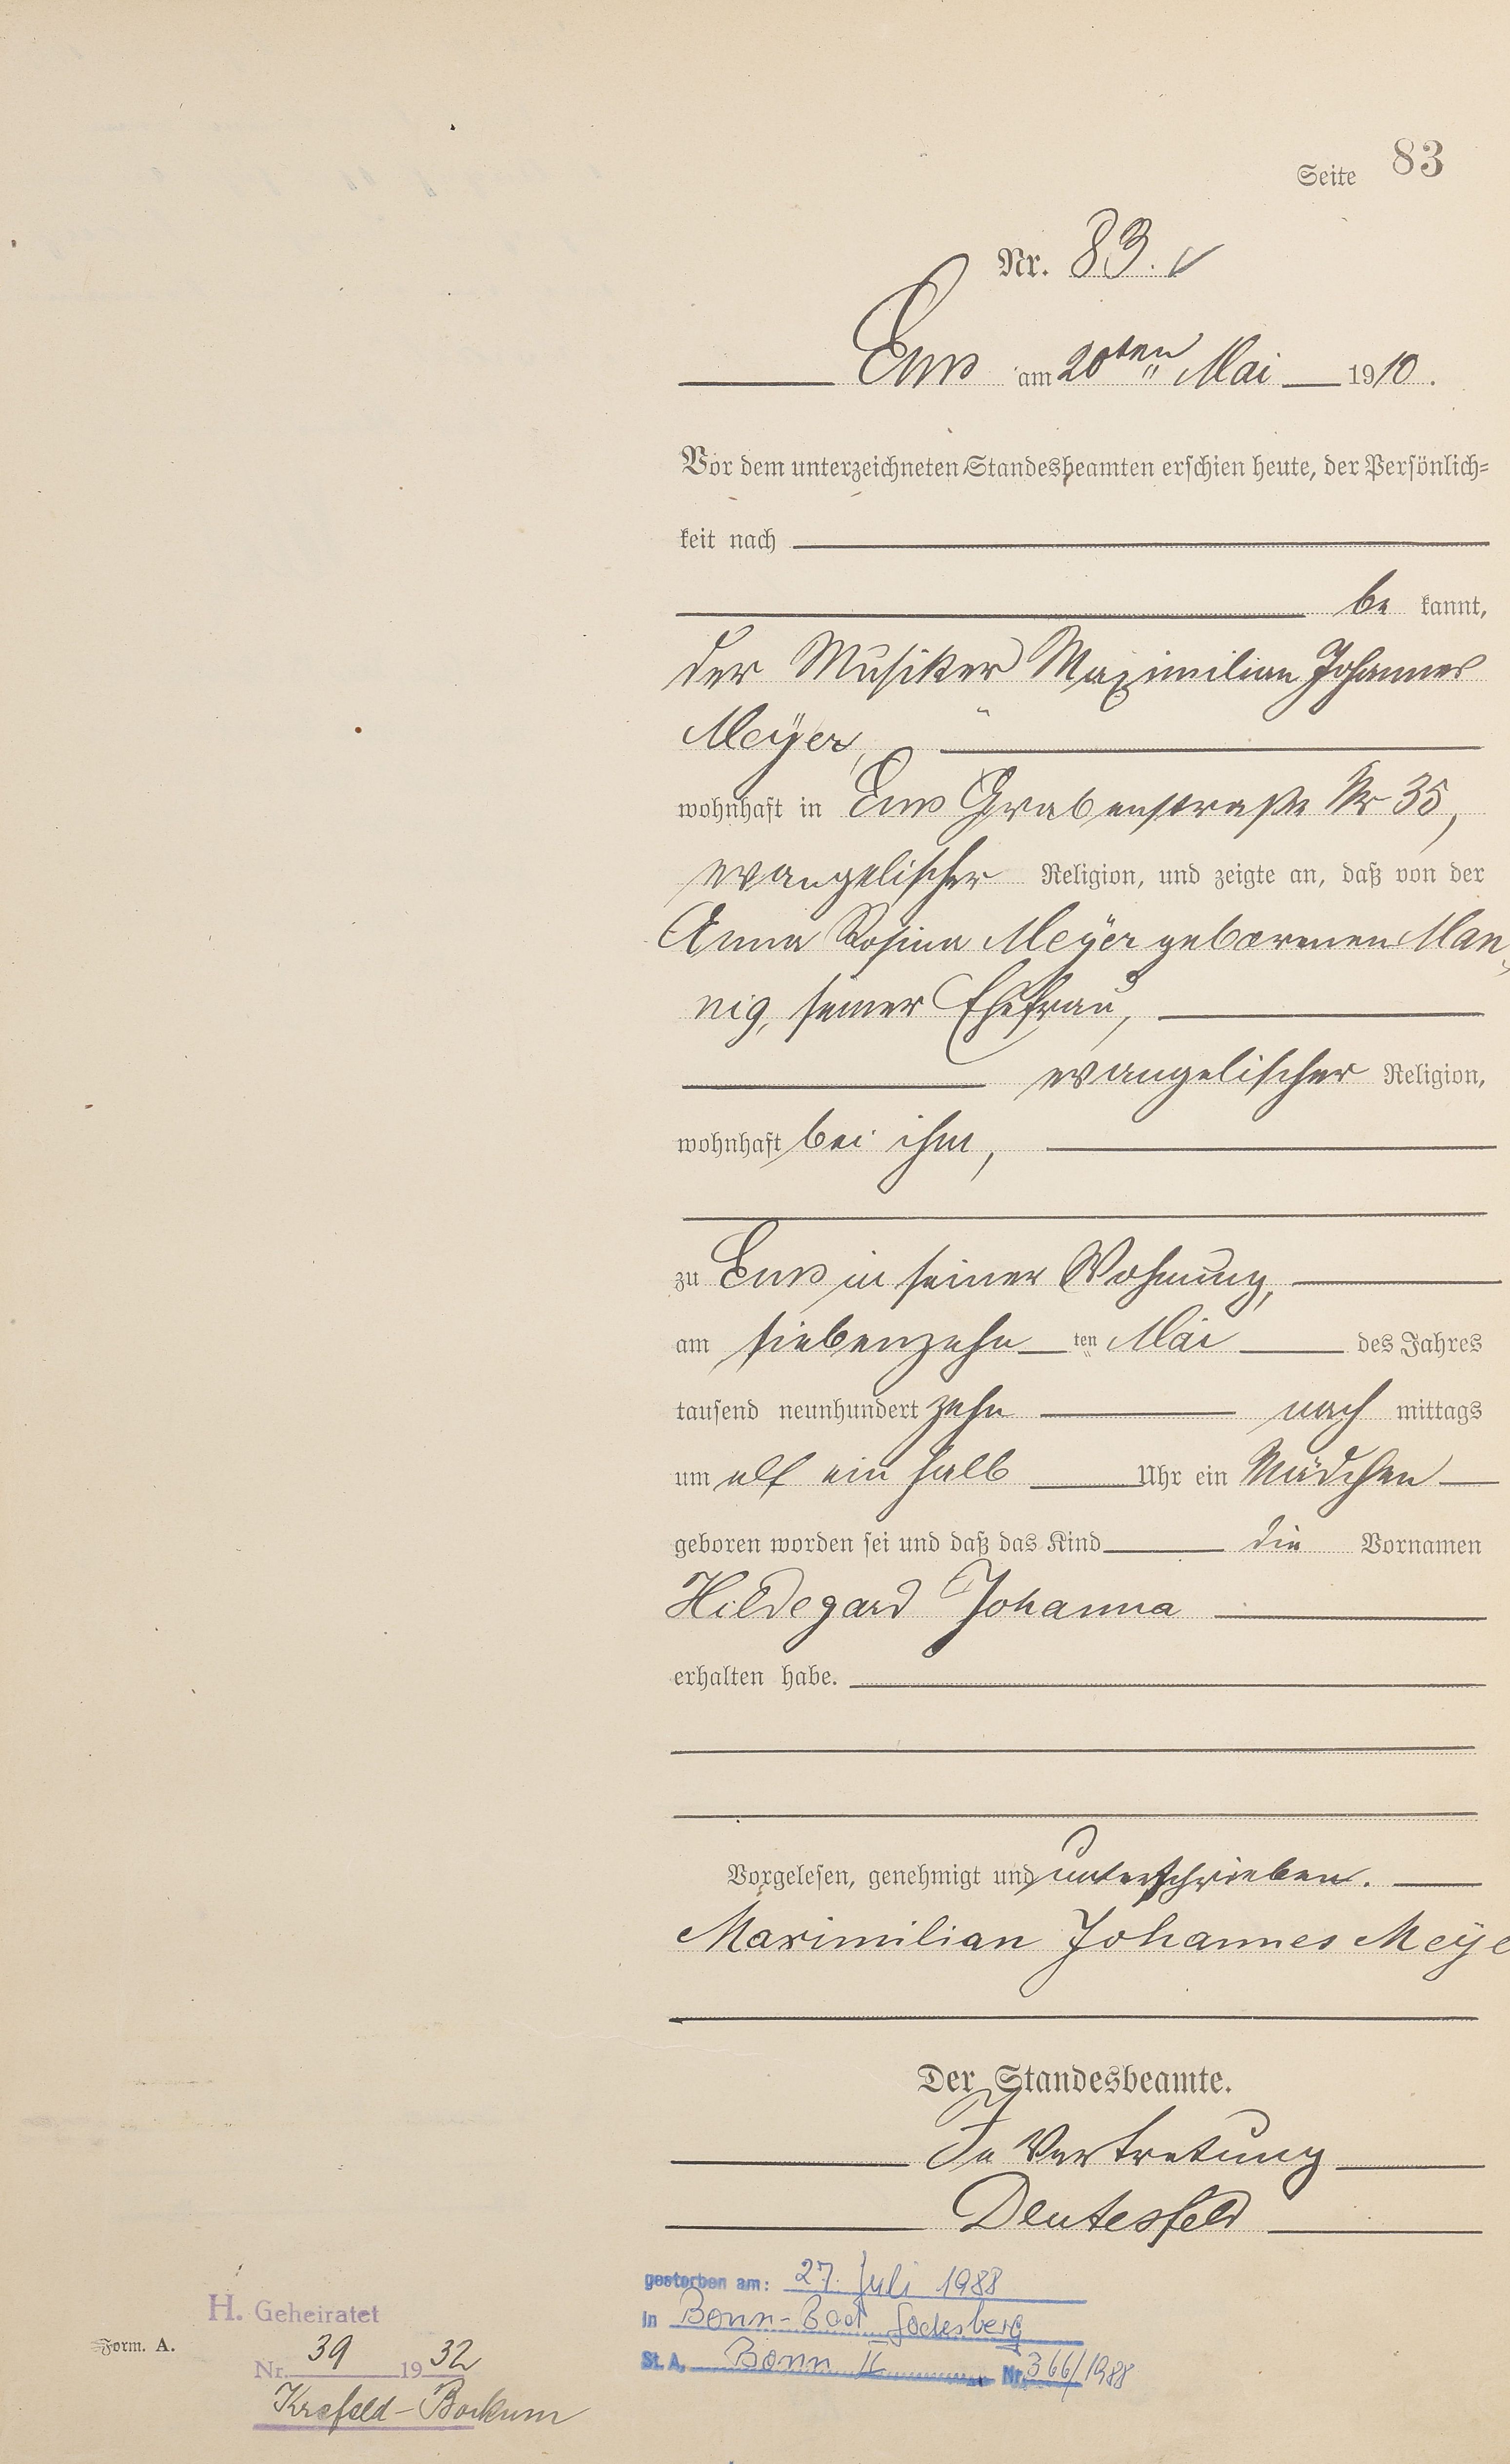 Seite 83
Nr. 83.
Ems am 20ten Mai 1910.
Vor dem unterzeichneten Standesbeamten erschien heute, der Persönlich=
keit nach
be kannt,
der Musiker Maximilian Johannes
Meÿer,
wohnhaft in Ems Grabenstraße Nr 35,
evangelischer Religion, und zeigte an, daß von der
Anna Rosina Meÿer geborenen Man,
nig, seiner Ehefrau,
evangelischer Religion,
wohnhaft bei ihm,
zu Ems in seiner Wohnung,
am siebenzehn ten Mai des Jahres
tausend neunhundert zehn nach mittags
um elf ein halb Uhr ein Mädchen
geboren worden sei und daß das Kind die Vornamen
Hildegard Johanna
erhalten habe.
Vorgelesen, genehmigt und unterschrieben.
Maximilian Johannes Meÿe
Der Standesbeamte.
In Vertretung
Deutesfeld
gestorben am: 27. Juli 1988
in Bonn-Bad Godesberg
St. A. Bonn II Nr. 366/1988
H. Geheiratet
Form. A.
Nr. 39 1932
Krefeld-Bockum